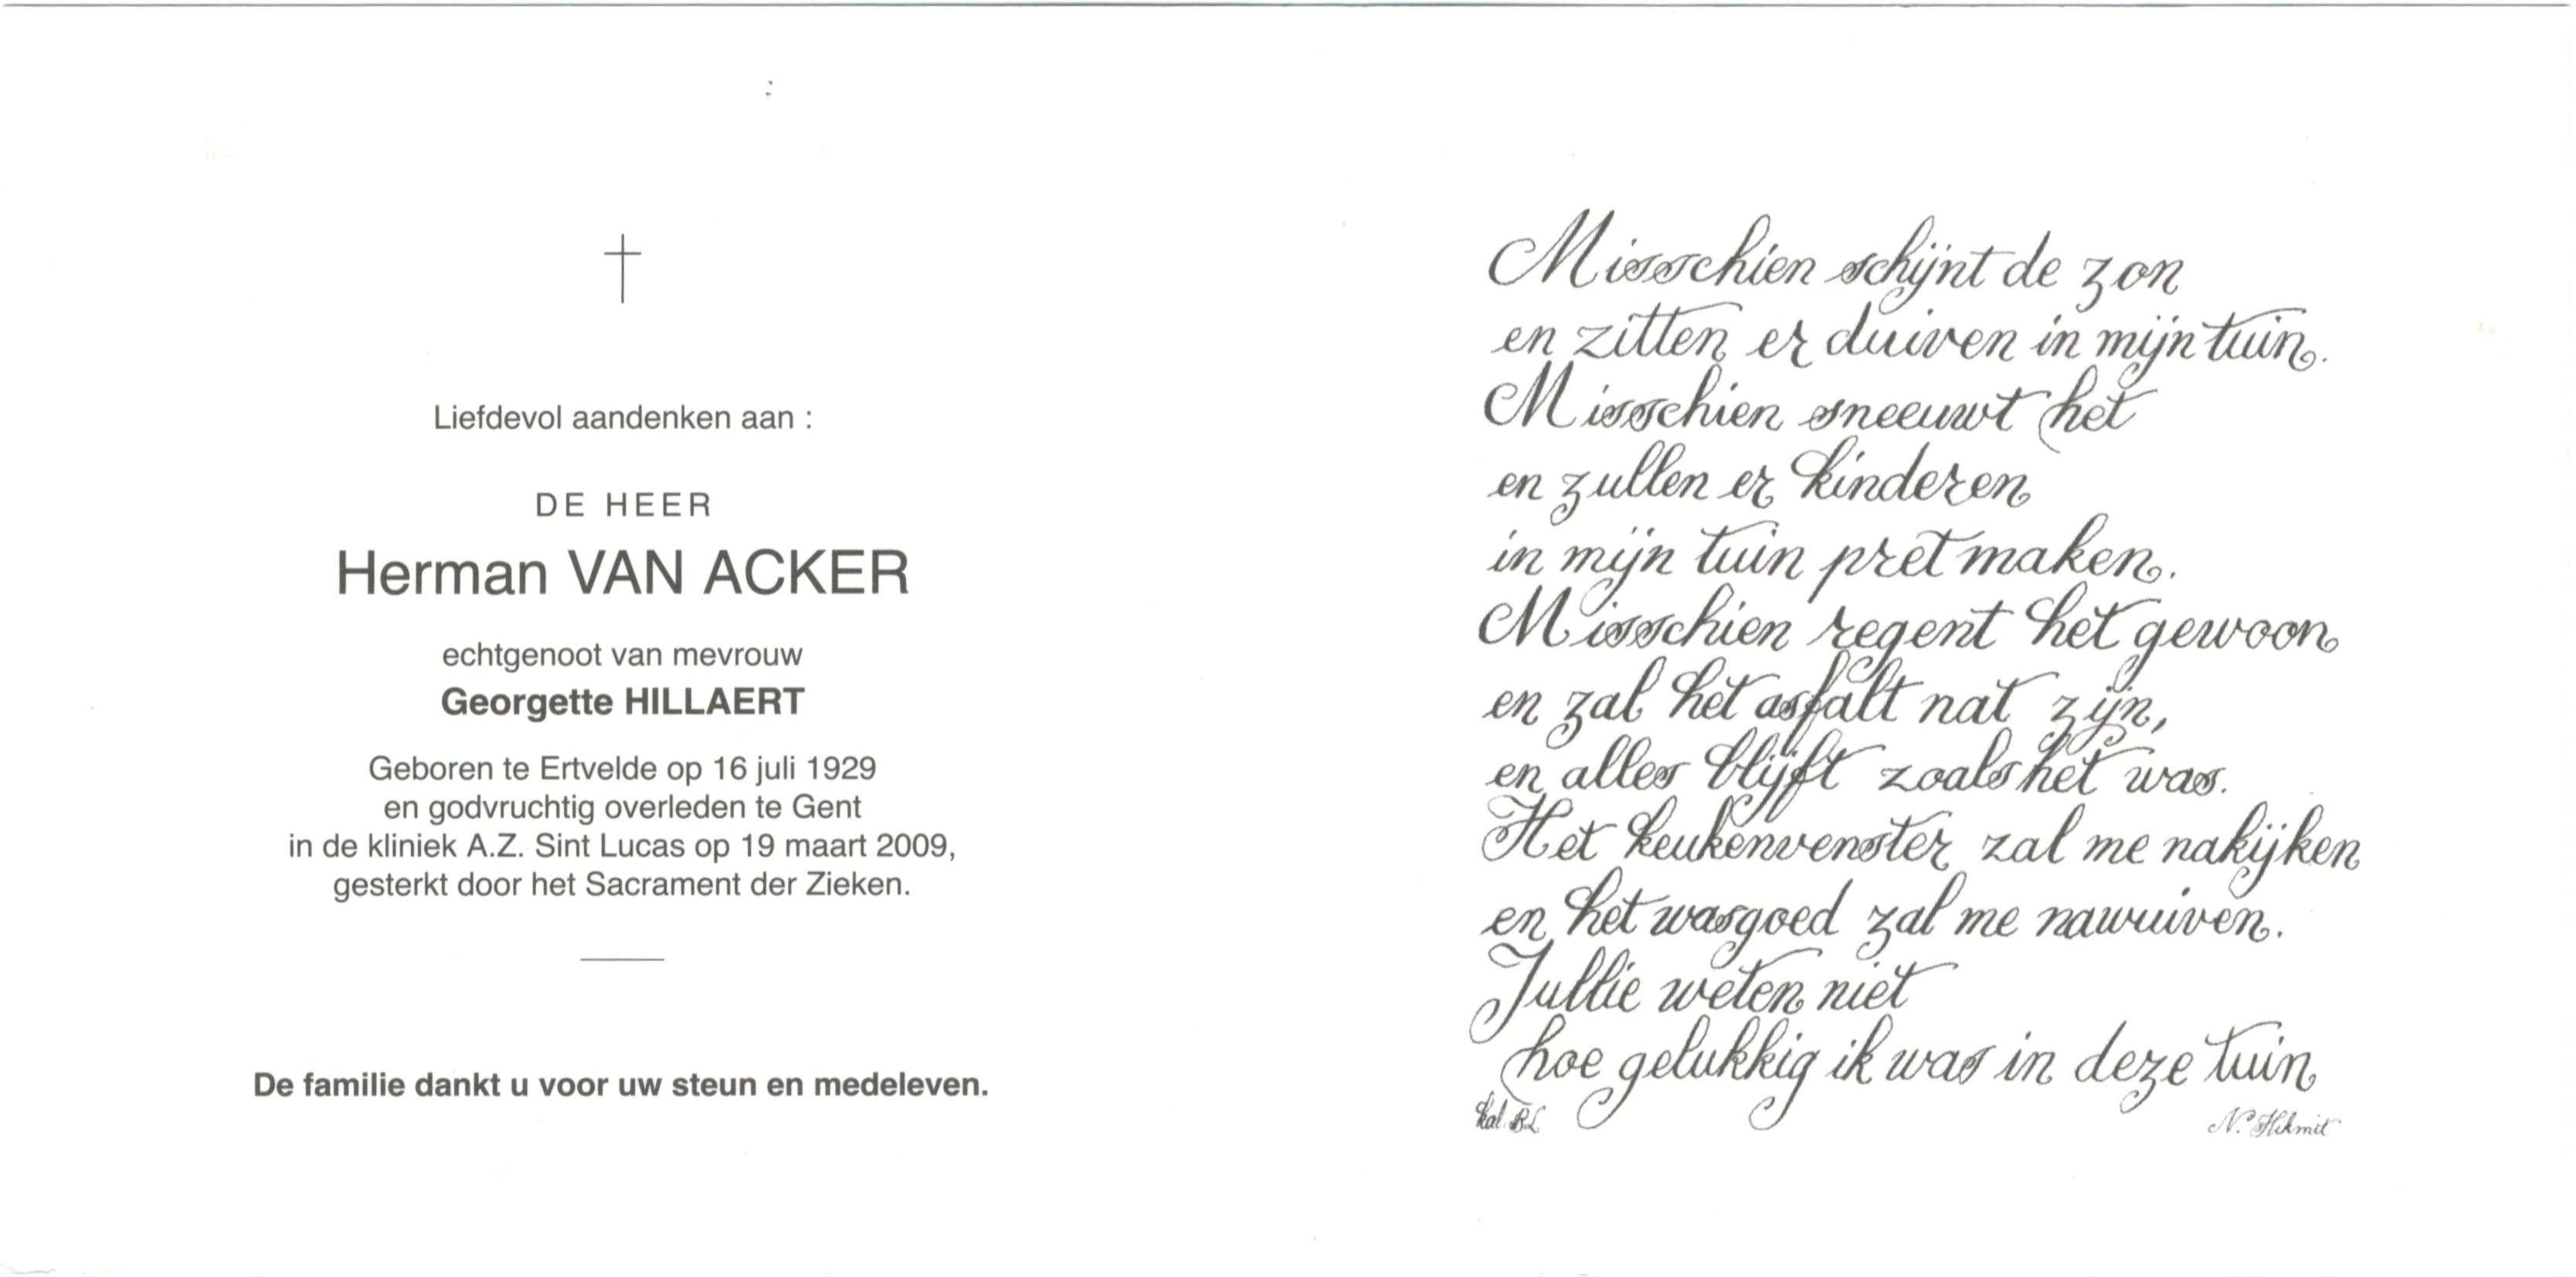 Liefdevol aandenken aan :
DE HEER
Herman VAN ACKER
echtgenoot van mevrouw
Georgette HILLAERT
Geboren te Ertvelde op 16 juli 1929
en godvruchtig overleden te Gent
in de kliniek A.Z. Sint Lucas op 19 maart 2009,
gesterkt door het Sacrament der Zieken.
De familie dankt u voor uw steun en medeleven.
Misschien schijnt de zon
en zitten er duiven in mijn tuin.
Misschien sneeuwt het
en zullen er kinderen
in mijn tuin pret maken.
Misschien regent het gewoon
en zal het asfalt nat zijn,
en alles blijft zoals het was.
Het keukenvenster zal me nakijken
en het wasgoed zal me nawuiven.
Jullie weten niet
hoe gelukkig ik was in deze tuin
kal. BL
N. Hikmit